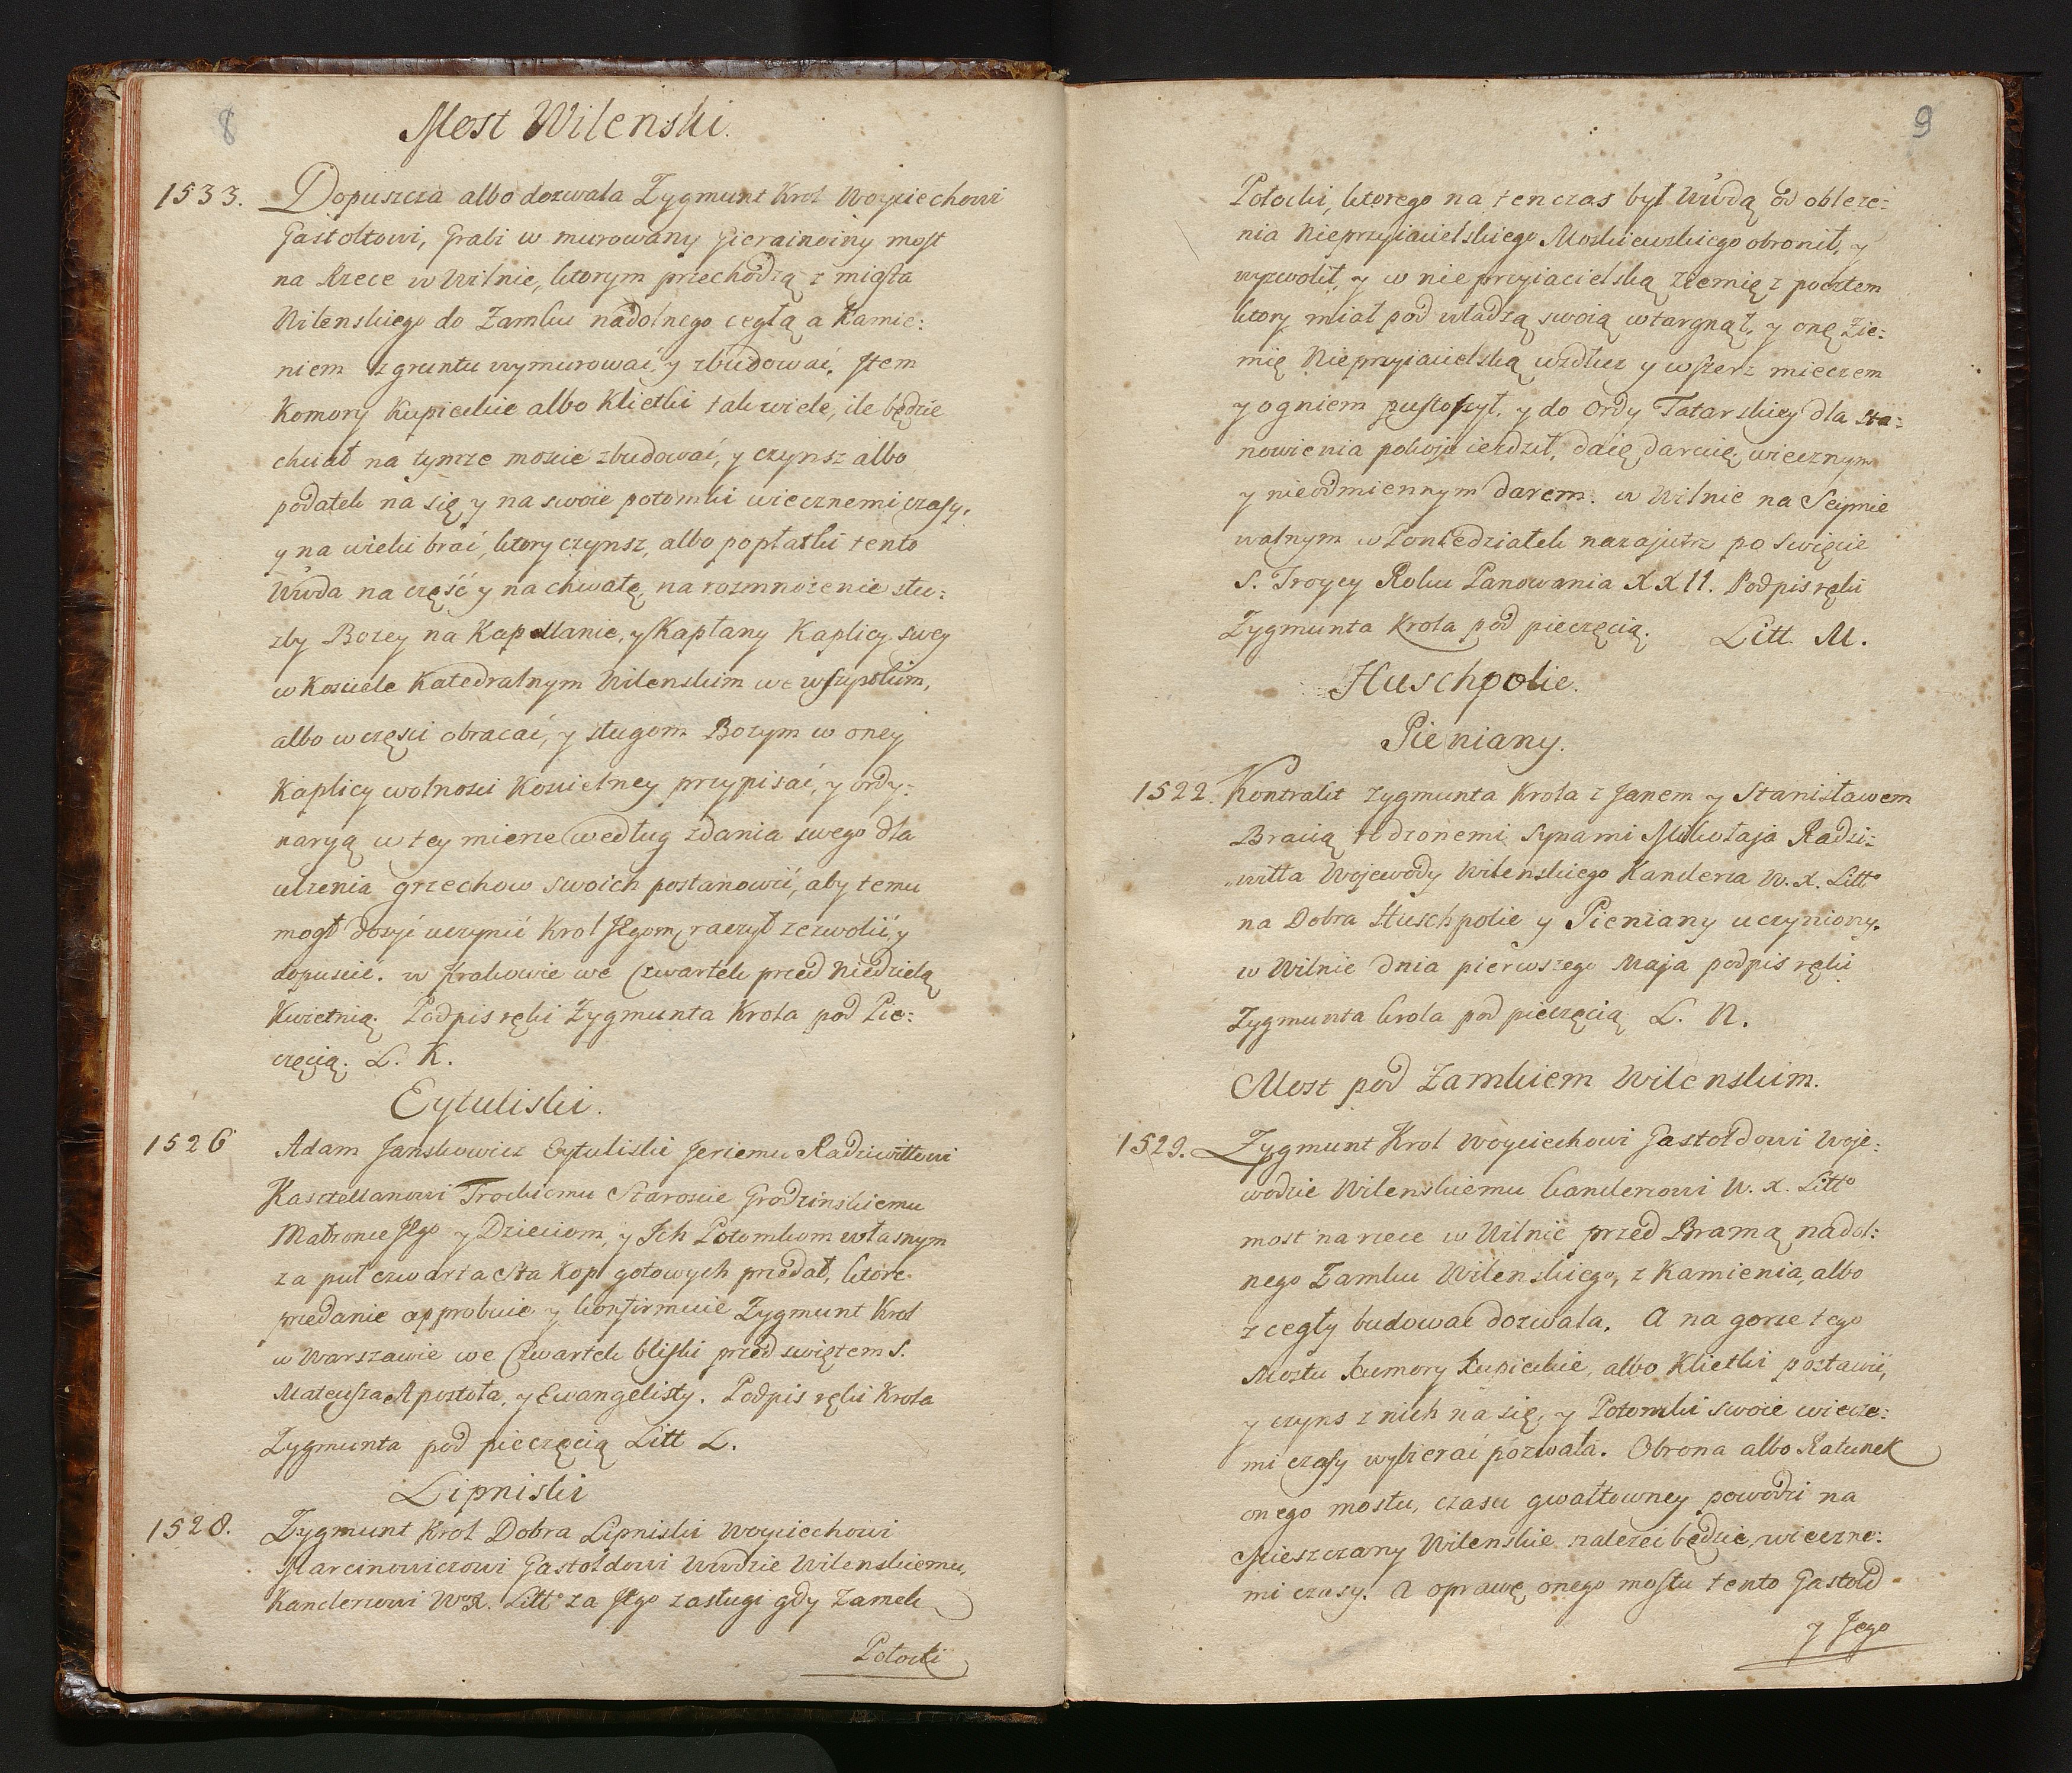 8
Most Wilenski.
1533. Dopuszcza albo dozwala Zygmunt Krol Woyciechowi
Gastoltowi, Grabi w murowany Gierainoiny most
na Rzece w Wilnie, ktorym przechodzą z miasta
Wilenskiego do Zamku nadolnego cegłą a Kamie:
niem z gruntu wymurować, y zbudować. Item
Komory Kupieckie albo Klietki tak wiele, ile będzie
chciał na tymze moscie zbudować, y czynsz albo
podatek na się y na swoie potomki wiecznemi czasy,
y na wieki brać, ktory czynsz, albo popłatki tento
Wwda na cześć y na chwałę, na rozmnożenie słu:
zby Bozey na Kapellanie, y Kapłany Kaplicy swey
w Kosciele Katedralnym Wilenskim we wszystkim,
albo wczęsci obracać, y sługom Bozym w oney
Kaplicy wolnosci Koscielney przypisać, y ordy:
naryą w tey mierze według zdania swego dla
ulzenia grzechow swoich postanowić, aby temu
mogł dosyć uczynić Krol Jego raczył zezwolić, y
dopuscić. w Krakowie we Czwartek przed Niedzielą
Kwietnią. Podpis ręki Zygmunta Krola pod Pie:
częcią. L. K.
Eytuliski.
1526 Adam Janskowicz Eytuliski Jerzemu Radziwiłłowi
Kasztellanowi Trockiemu Staroscie Grodzinskiemu
Małzonce Jego y Dzieciom, y Ich Potomkom własnym
za puł czwarta Sta Kop gotowych przedał, które
przedanie approbuie y konfirmuie Zygmunt Krol
w Warszawie we Czwartek bliski przed swiętem S.
Mateusza Apostoła, y Ewangelisty. Podpis ręki Krola
Zygmunta pod pieczęcią Litt L.
Lipniski
1528. Zygmunt Krol Dobra Lipniski Woyciechowi
Marcinowiczowi Gastołdowi Wwdzie Wilenskiemu,
Kanclerzowi W. X. Litto za Jego zasługi gdy Zamek
Połocki
9
Połocki, ktorego na ten czas był Wwdą od obleze:
nia Nieprzyiacielskiego Moskiewskiego obronił, y
wyzwolił, y w nieprzyiacielską ziemię z pocztem
ktory miał pod władzą swoią wtargnął, y onę Zie:
mię Nieprzyiacielską wzdłuz y wszerz mieczem
y ogniem pustoszył. y do Ordy Tatarskiey dla sta:
nowienia pokoju iezdził, daię daruię wiecznym
y nieodmiennym darem. w Wilnie na Sejmie
walnym w Poniedziałek nazajutrz po Swięcie
S. Troycy Roku Panowania XXII. Podpis ręki
Zygmunta Krola pod pieczęcią. Litt M.
Huschpolie.
Pieniany.
1522. Kontrakt Zygmunta Krola z Janem y Stanisławem
Bracią rodzonemi Synami Mikołaja Radzi:
wiłła Wojewody Wilenskiego Kanclerza W. X. Litto
na Dobra Huschpolie y Pieniany uczyniony.
w Wilnie dnia pierwszego Maja podpis ręki
Zygmunta krola pod pieczęcią L. N.
Most pod Zamkiem Wilenskim.
1529. Zygmunt Krol Woyciechowi Gastołdowi Woje:
wodzie Wilenskiemu kanclerzowi W. X. Litto
most na rzece w Wilnie przed Bramą nadol:
nego Zamku Wilenskiego, z Kamienia, albo
z cegły budować dozwala. A na gorze tego
Mostu Kumory Kupieckie, albo Klietki postawić,
y czyns z nich na się, y Potomki swoie wieczne:
mi czasy wybierać pozwala. Obrona albo Ratunek
onego mostu, czasu gwałtowney powodzi na
Mieszczany Wilenskie nalezeć będzie, wieczne:
mi czasy. A oprawę onego mostu tento Gastold
y Jego